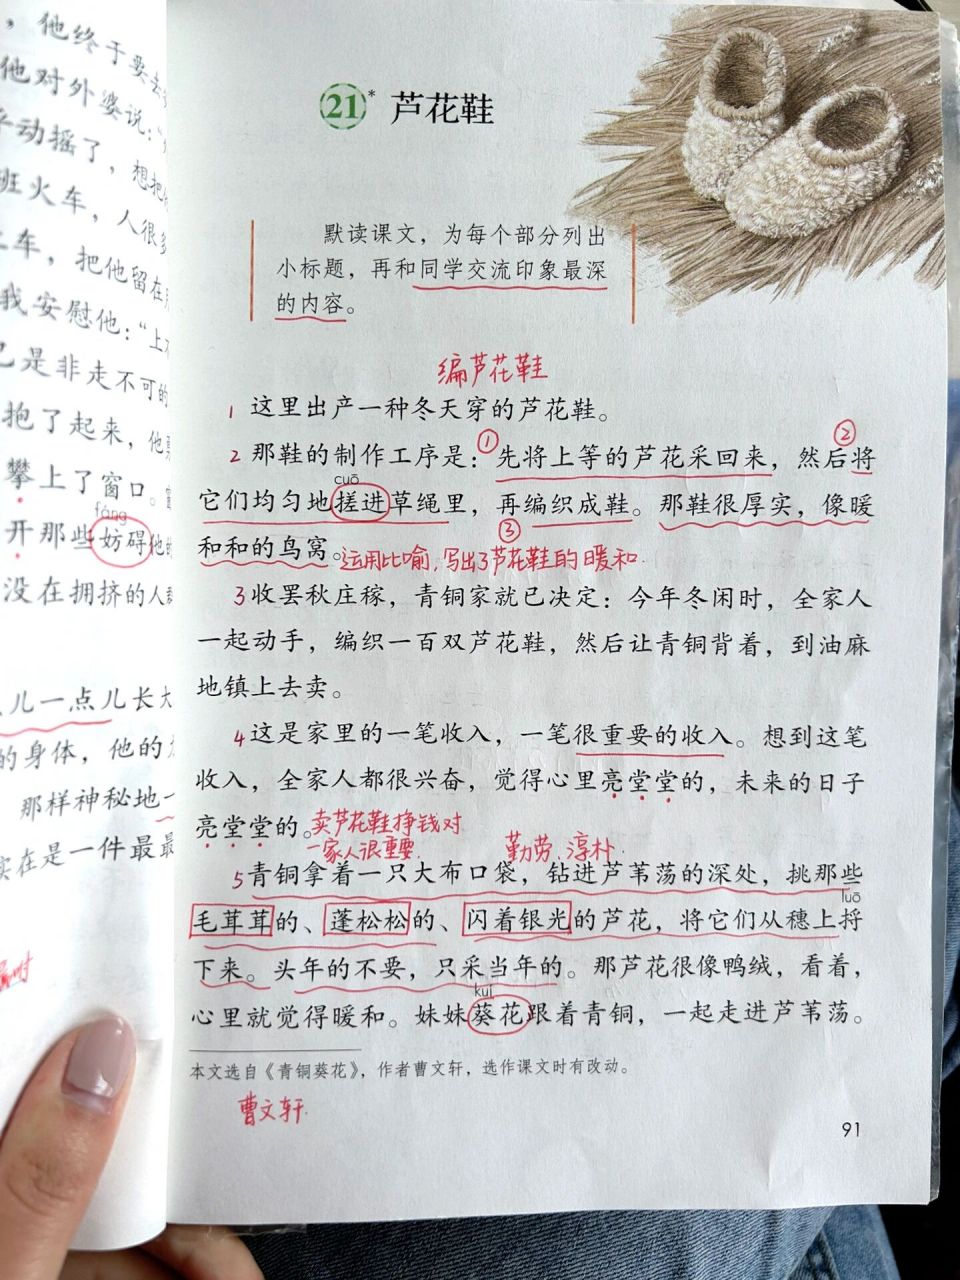 ，他终于要去
他对外婆说：“
动摇了，想把他
班火车，人很多
车，把他留在
我安慰他：“上
已是非走不可的
抱了起来，他
攀上了窗口。
fáng
开那些妨碍他的
没在拥挤的人群
儿一点儿长大
的身体，他的
那样神秘地一
实在是一件最最
21* 芦花鞋
默读课文，为每个部分列出
小标题，再和同学交流印象最深
的内容。
编芦花鞋
1 这里出产一种冬天穿的芦花鞋。
2 那鞋的制作工序是：①先将上等的芦花采回来，然后②将
cuō
它们均匀地搓进草绳里，再编织成鞋。那鞋很厚实，像暖
③
和和的鸟窝。运用比喻，写出了芦花鞋的暖和.
3 收罢秋庄稼，青铜家就已决定：今年冬闲时，全家人
一起动手，编织一百双芦花鞋，然后让青铜背着，到油麻
地镇上去卖。
4 这是家里的一笔收入，一笔很重要的收入。想到这笔
收入，全家人都很兴奋，觉得心里亮堂堂的，未来的日子
亮堂堂的。卖芦花鞋挣钱对
一家人很重要. 勤劳.淳朴.
5 青铜拿着一只大布口袋，钻进芦苇荡的深处，挑那些
luō
毛茸茸的、蓬松松的、闪着银光的芦花，将它们从穗上捋
下来。头年的不要，只采当年的。那芦花很像鸭绒，看着，
kuí
心里就觉得暖和。妹妹葵花跟着青铜，一起走进芦苇荡。
本文选自《青铜葵花》，作者曹文轩，选作课文时有改动。
曹文轩.
91